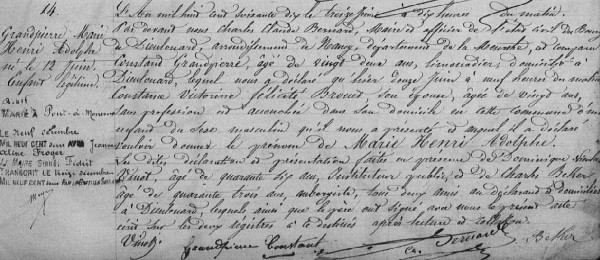 14.
Grandpierre Marie
Henri Adolphe
né le 12 Juin.
Enfant légitime.
MARIÉ À Pont-à-Mousson
LE neuf décembre
MIL NEUF CENT deux AVEC Jeanne
Froger
LE MAIRE
TRANSCRIT LE treize décembre
MIL NEUF CENT deux
L'an mil huit cent soixante dix le treize Juin à dix heures du matin
Par devant nous Charles Claude Bernard, Maire et officier de l'état civil du Bourg
de Dieulouard, arrondissement de Nancy, département de la Meurthe, est comparu
Constant Grandpierre, âgé de vingt deux ans, limonadier, domicilié à
Dieulouard, lequel nous a déclaré qu'hier douze Juin à neuf heures du matin
Constance Victorine Félicité Brouet, son épouse, âgée de vingt ans,
sans profession est accouchée dans son domicile en cette commune d'un
enfant du sexe masculin qu'il nous a présenté et auquel il a déclaré
vouloir donner le prénom de Marie Henri Adolphe.
Les dites déclaration et présentation faites en présence de Dominique Nicolas
Vinot, âgé de quarante six ans, instituteur public, et de Charles Beker
âgé de quarante trois ans, aubergiste, tous deux amis du déclarant et domiciliés
à Dieulouard, lesquels ainsi que le père ont signé avec nous le présent acte
écrit sur les deux registres à ce destinés après lecture et collation.
Vinot Grandpierre Constant Bernard Beker